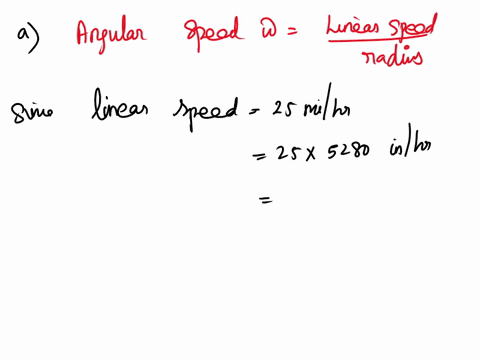 a) Angular speed ω = Linear speed / radius
Since linear speed = 25 mi/hr
= 25 × 5280 in/hr
=